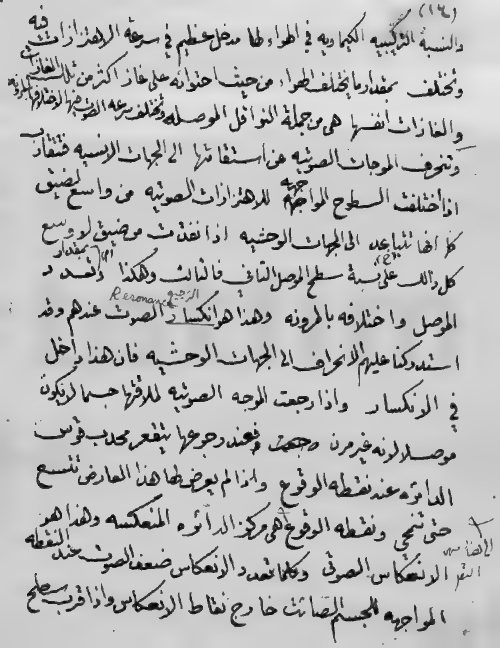 (١٤)
والنسبة التركيبيه الكيماويه في الهواء لها مدخل عظيم في سرعة الاهتزازات فيه
وتختلف بمقدار ما يختلف الهواء من حيث احتوائه على غاز اكثر من تلك الغازات
والغازات انفسها هي من جملة النواقل الموصله وتختلف سرعه الصوت فيها لاختلافها
وتنحرف الموجات الصوتيه عن استقامتها الى الجهات الانسيه فتتقارب
اذا اختلفت السطوح المواجهة للاهتزازات الصوتيه من واسع لضيق
كما انها تتباعد الى الجهات الوحشيه اذا نفذت من ضيق لاوسع
كل ذالك على نسبة سطح الموصل الثاني فالثالث وهكذا وتعدد
الموصل واختلافه بالمرونه وهذا هو انكسار الصوت عندهم وقد
Resonance
استدركنا عليهم الانحراف الى الجهات الوحشيه فان هذا داخل
في الانكسار واذا رجعت الموجه الصوتيه لملاقتها جسما لا يكون
موصلا لانه غير مرن فعند رجوعها يتقعر محدب قوس
الدائره عند نقطه الوقوع واذا لم يعرض لها هذا العارض تتسع
حتى تنمحي ونقطه الوقوع هي مركز الدائره المنعكسه وهذا هو
الانعكاس الصوتي وكلما تعدد الانعكاس ضعف الصوت عند النقطه
المواجهه للجسم الصائت خارج نقاط الانعكاس واذا قرب سطح